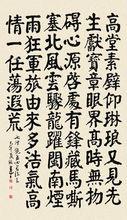 高堂素壁仰琳琅又見先
生獻寶章眼界高時無物
碍心源啓處有鋒藏馬嘶
塞北風雲驟龍躍閩南煙
雨狂軍旅由來多浩氣高
情一任蕩遐荒